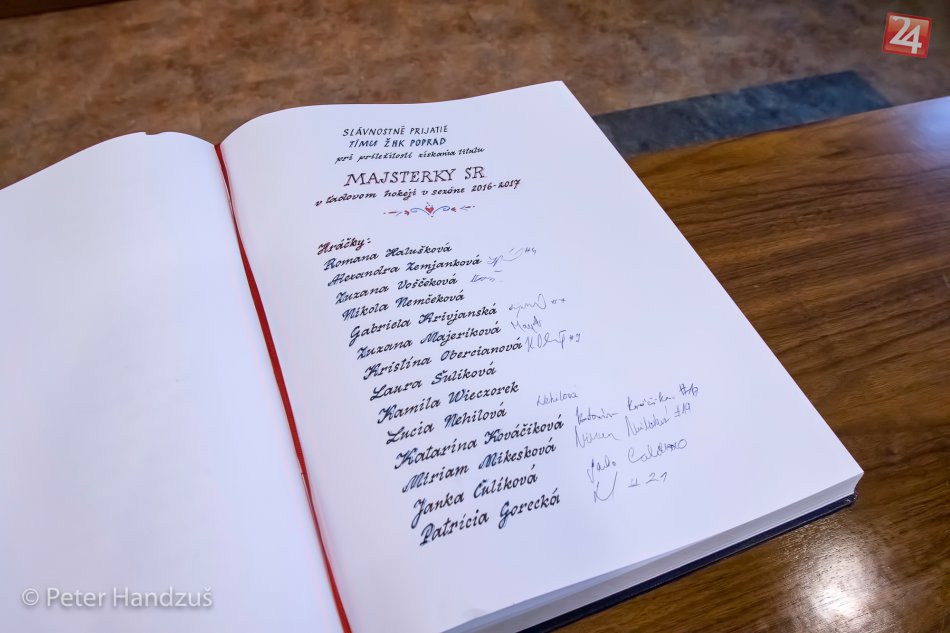 24
SLÁVNOSTNÉ PRIJATIE
TÍMU ŽHK POPRAD
pri príležitosti získania titulu
MAJSTERKY SR
v ľadovom hokeji v sezóne 2016-2017
Hráčky:
Romana Halušková
Alexandra Zemjanková
Zuzana Voščeková
Nikola Nemčeková
Gabriela Krivjanská
Zuzana Majeríková
Kristína Obercianová
Laura Šulíková
Kamila Wieczorek
Lucia Nehilová Nehilová
Katarína Kováčiková
Miriam Mikesková #19
Janka Čulíková
Patrícia Gorecká # 21
© Peter Handzuš